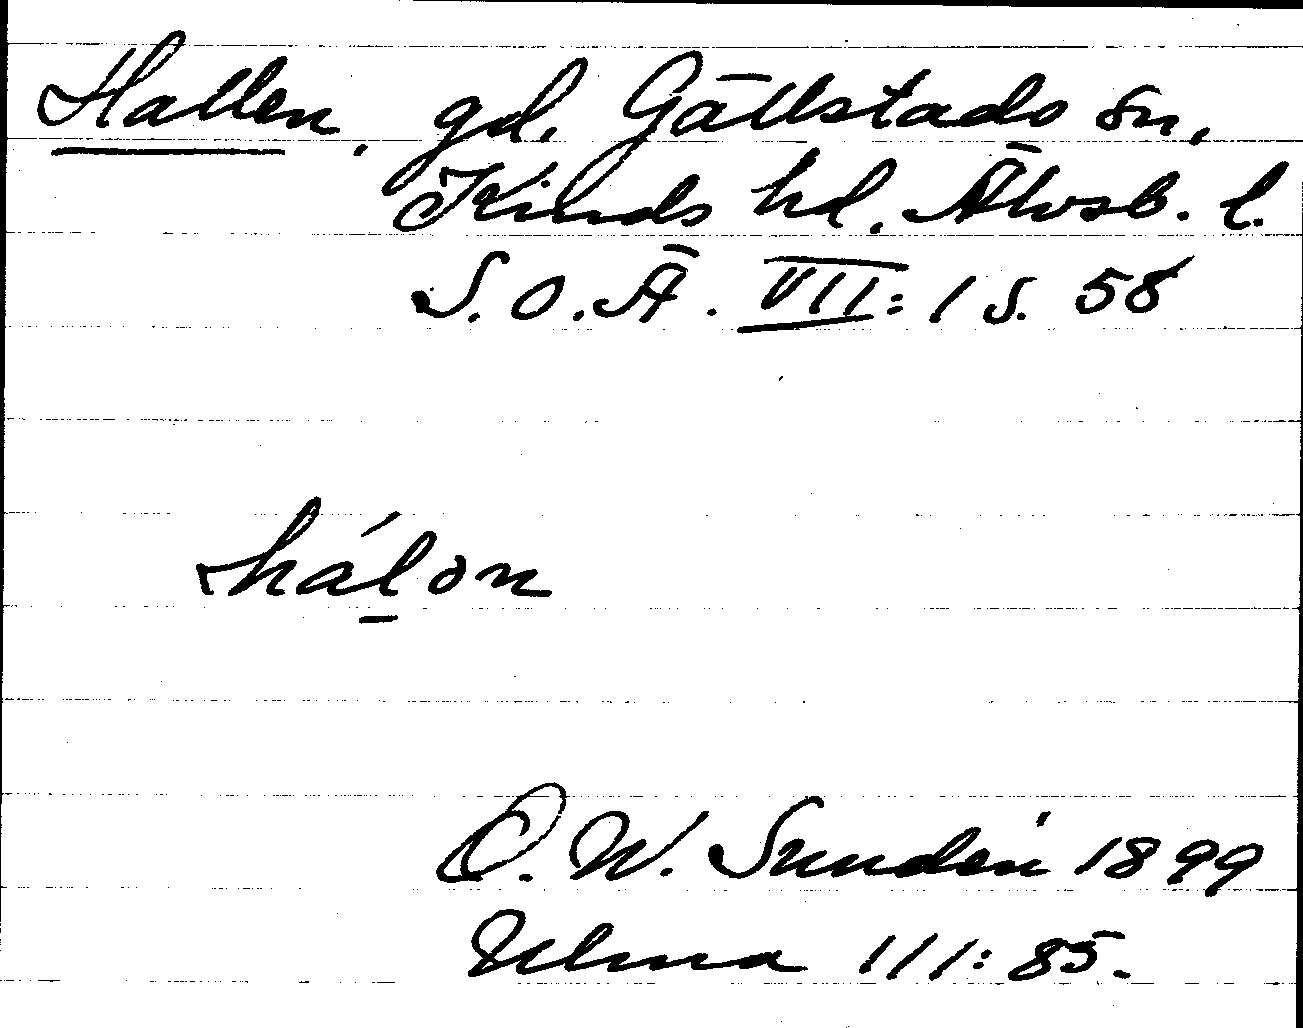 Hallen, gd. Gällstads sn,
Kinds hd. Älvsb. l.
S.O.Ä. VII: 1 S. 58
hálon
O. W. Sundén 1899
Ulma 111: 85.